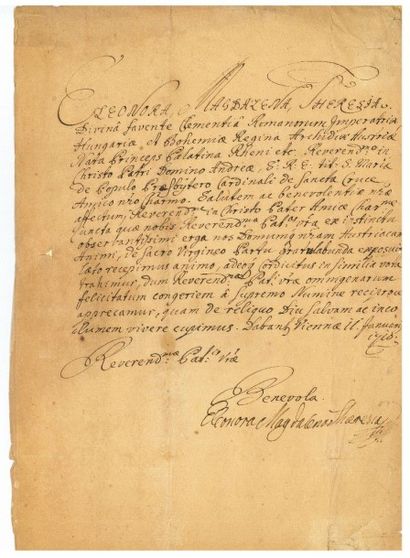 ELEONORA, MAGDALENA, THERESIA
Divinâ favente Clementiâ Romanorum Imperatrix
Hungariæ, et Bohemiæ Regina Archidux Austriæ
Nata Princeps Palatina Rheni etc. Reverendmo in
Christo Patri Domino Andreæ, S. R. E. tit. S. Mariæ
de Populo Præsbytero Cardinali de Sancta Cruce
Amico nro Salutem ac benevolentiæ nræ
affectum. Reverendme in Christo Pater Amice Charme
quæ nobis Reverendma Pat. vra ex
observantissimi erga nos Domumq nram Austriacam
Animi, de Sacro Virgineo Partu exposuit
læto recepimus animo, adeoq in similia vota
trahimur, dum Reverendmæ Pat. vræ omnigenarum
felicitatum congeriem à Supremo Numine
apprecamur, quam de reliquo Diu Salvam ac inco
lumem vivere cupimus. Dabantur Viennæ 11. Januarii
Reverendmæ Pat. Vræ
Benevola
Eleonora Magdalena Theresia